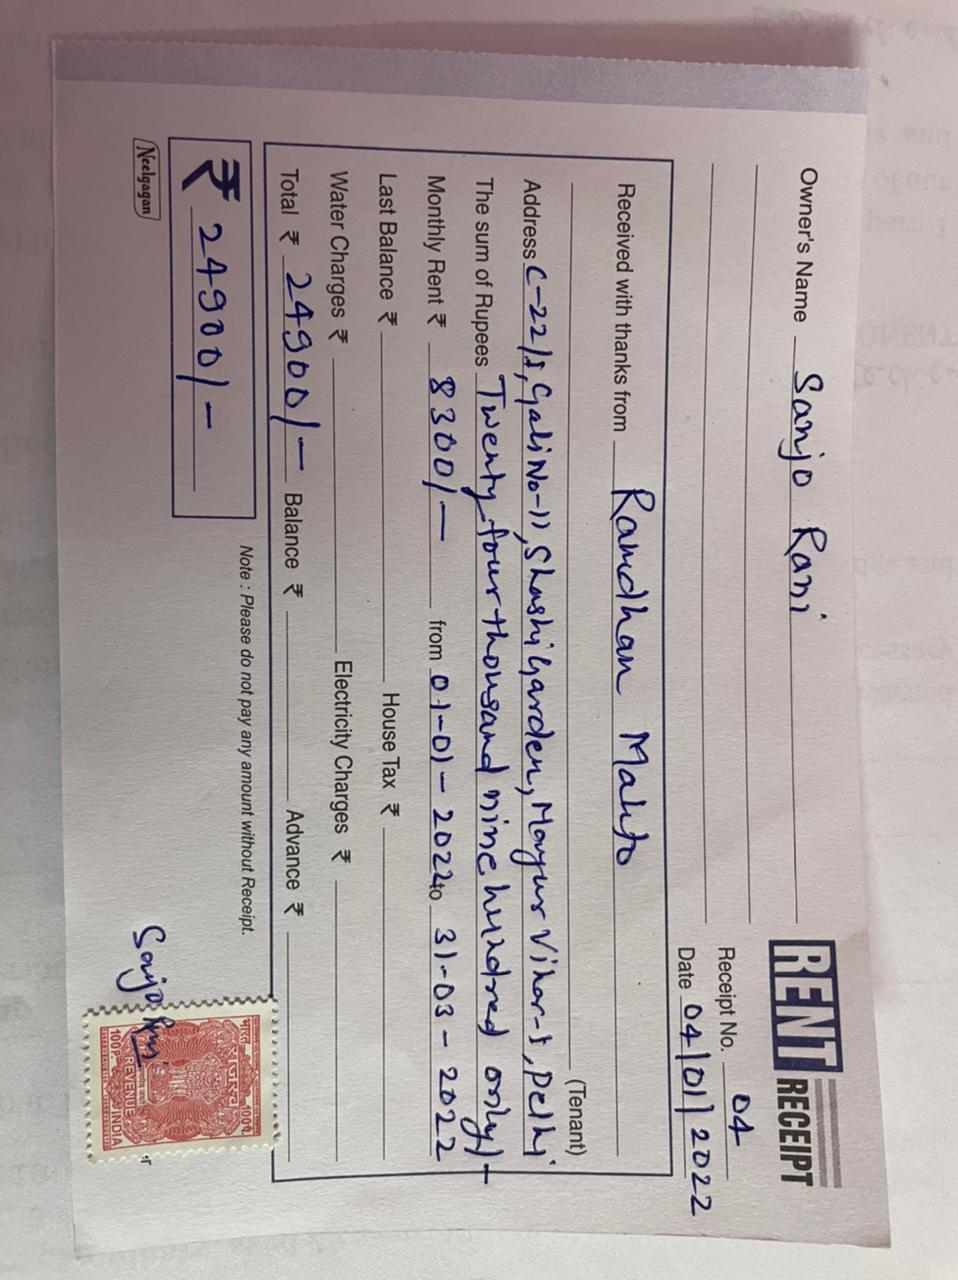 RENT RECEIPT
Owner's Name Sanjo Rani
Receipt No. 04
Date 04/01/2022
Received with thanks from Ramdhan Mahto
(Tenant)
Address C-22/1, Gali No-11, Shashi Garden, Mayur Vihar-1, Delhi
The sum of Rupees Twenty four thousand nine hundred only/-
Monthly Rent ₹ 8300/- from 01-01-2022 to 31-03-2022
Last Balance ₹ House Tax ₹
Water Charges ₹ Electricity Charges ₹
Total ₹ 24900/- Balance ₹ Advance ₹
₹ 24900/-
Note : Please do not pay any amount without Receipt.
Sanjo Rani
भारत INDIA
100P. REVENUE
Neelgagan